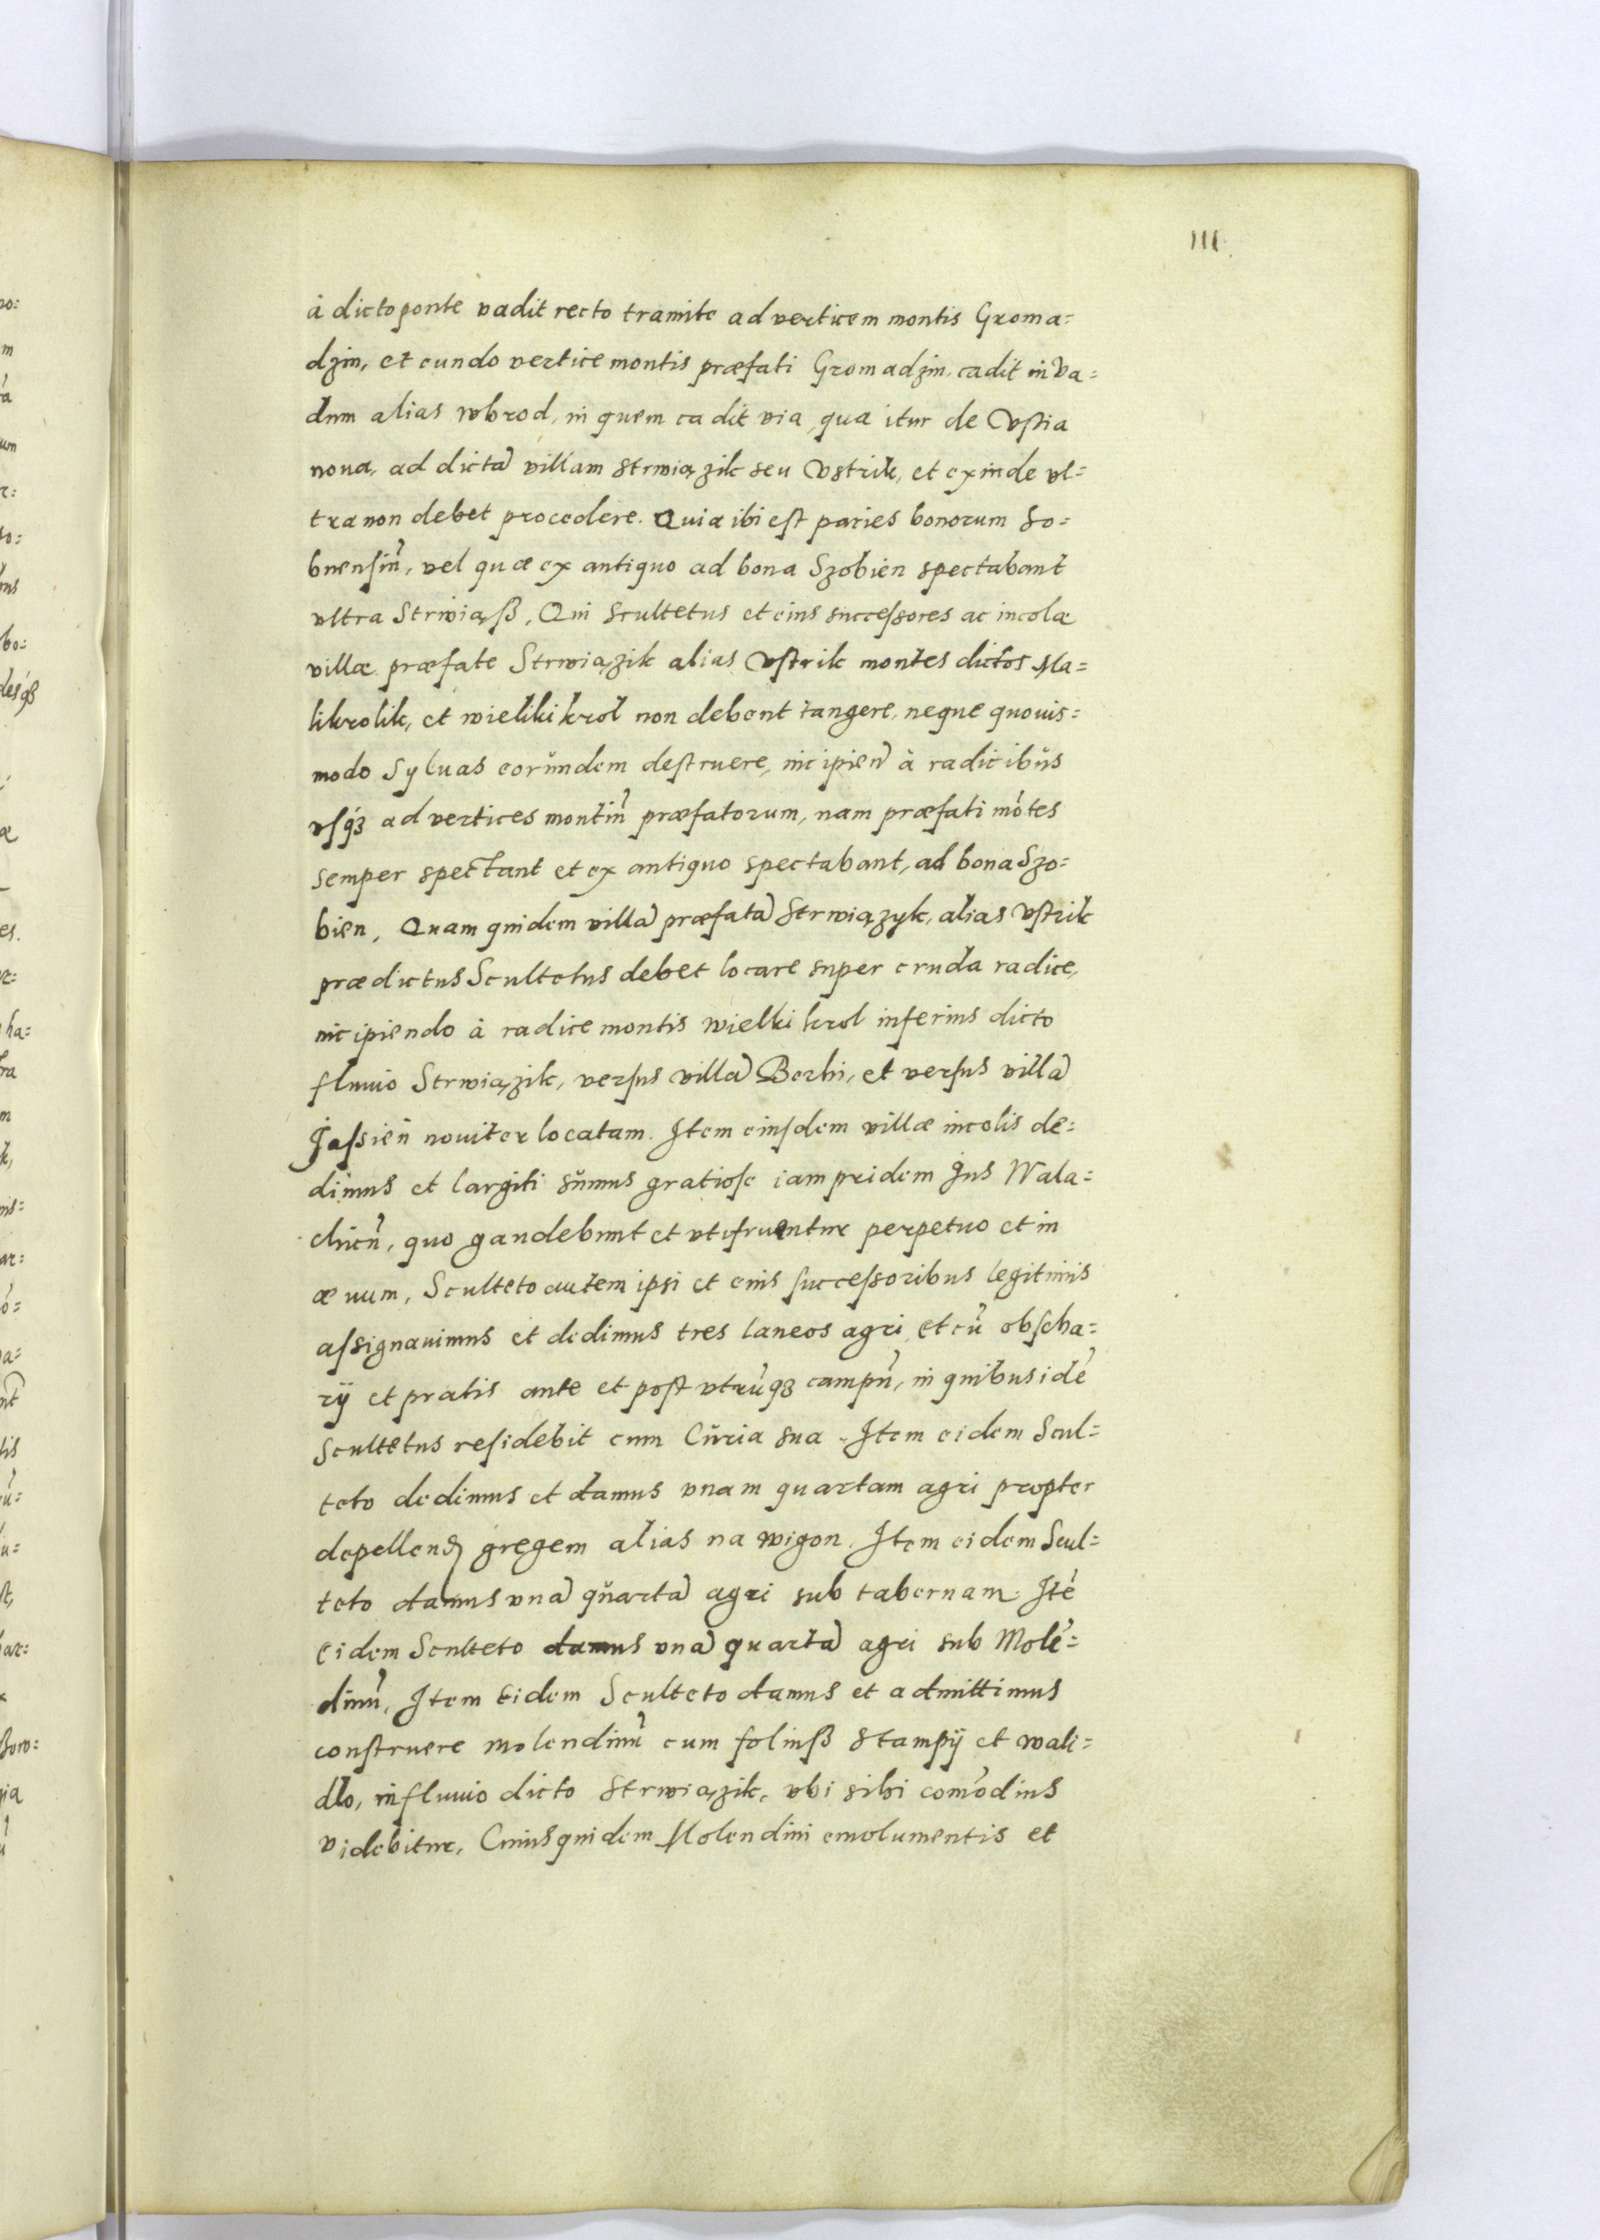 III
à dicto ponte vadit recto tramite ad verticem montis Groma=
dzin, et eundo vertice montis præfati Gromadzin, cadit in va=
dum alias wbrod, in quem cadit via, qua itur de Vstia
noua, ad dictã villam Strwiązik seu Vstrik, et exinde vl=
tra non debet procedere. Quia ibi est paries bonorum So=
bnensiũ, vel quæ ex antiquo ad bona Szobień spectabant
vltra Strwiąß, Qui Scultetus et eius successores ac incolæ
villæ præfate Strwiązik alias Vstrik montes dictos Ma=
likrolik, et wieliki krol non debent tangere, neque quouis=
modo Syluas eorundem destruere, incipień à radicibus
vsq́ȝ ad vertices montiũ præfatorum, nam præfati mõtes
semper spectant et ex antiquo spectabant, ad bona Szo=
bien, Quam quidem villã præfatã Strwiązyk, alias Vstrik
prædictus Scultetus debet locare super cruda radice,
incipiendo à radice montis wielki krol inferius dicto
fluuio Strwiązik, versus villã Berhi, et versus villã
Jassień nouiter locatam. Item eiusdem villæ incolis de=
dimus et largiti sumus gratiose iam pridem Jus Wala=
chicũ, quo gaudebunt et vtifruentur perpetuo et in
æuum, Sculteto autem ipsi et eius successoribus legitimis
assignauimus et dedimus tres laneos agri, et cũ obscha=
rÿ et pratis ante et post vtrũqȝ campũ, in quibus idẽ
Scultetus residebit cum Curia sua. Item eidem Scul=
teto dedimus et damus vnam quartam agri propter
depellenđ gregem alias na wigon. Item eidem Scul=
teto damus vnã quartã agri sub tabernam. Itẽ
eidem Sculteto damus vnã quartã agri sub Molẽ=
dinũ, Item eidem Sculteto damus et admittimus
construere molendinũ cum foliuß Stampÿ et wali=
dlo, in fluuio dicto Strwiązik, vbi sibi comõdius
videbitur, Cuius quidem Molendini emolumentis et